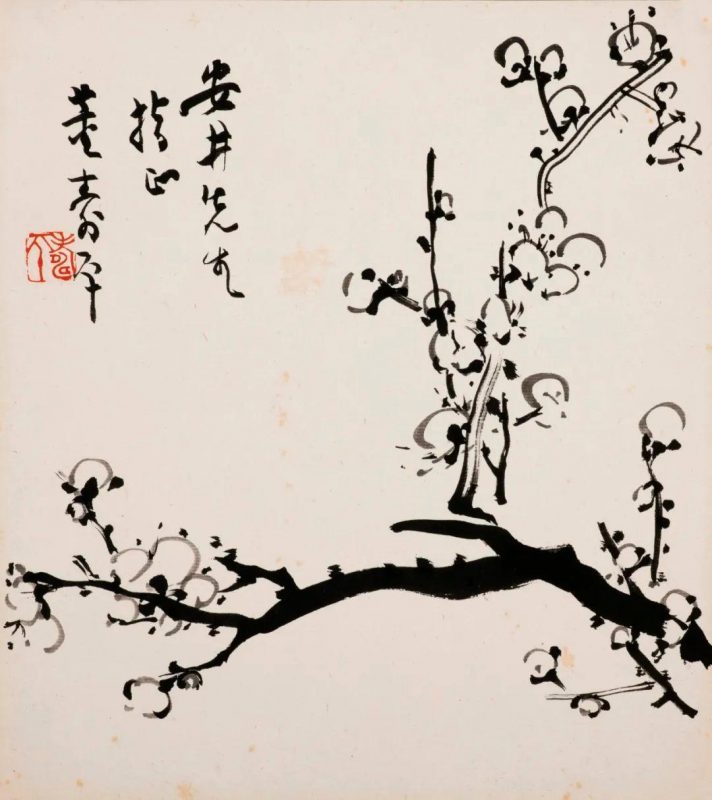 安井先生
指正
董寿平